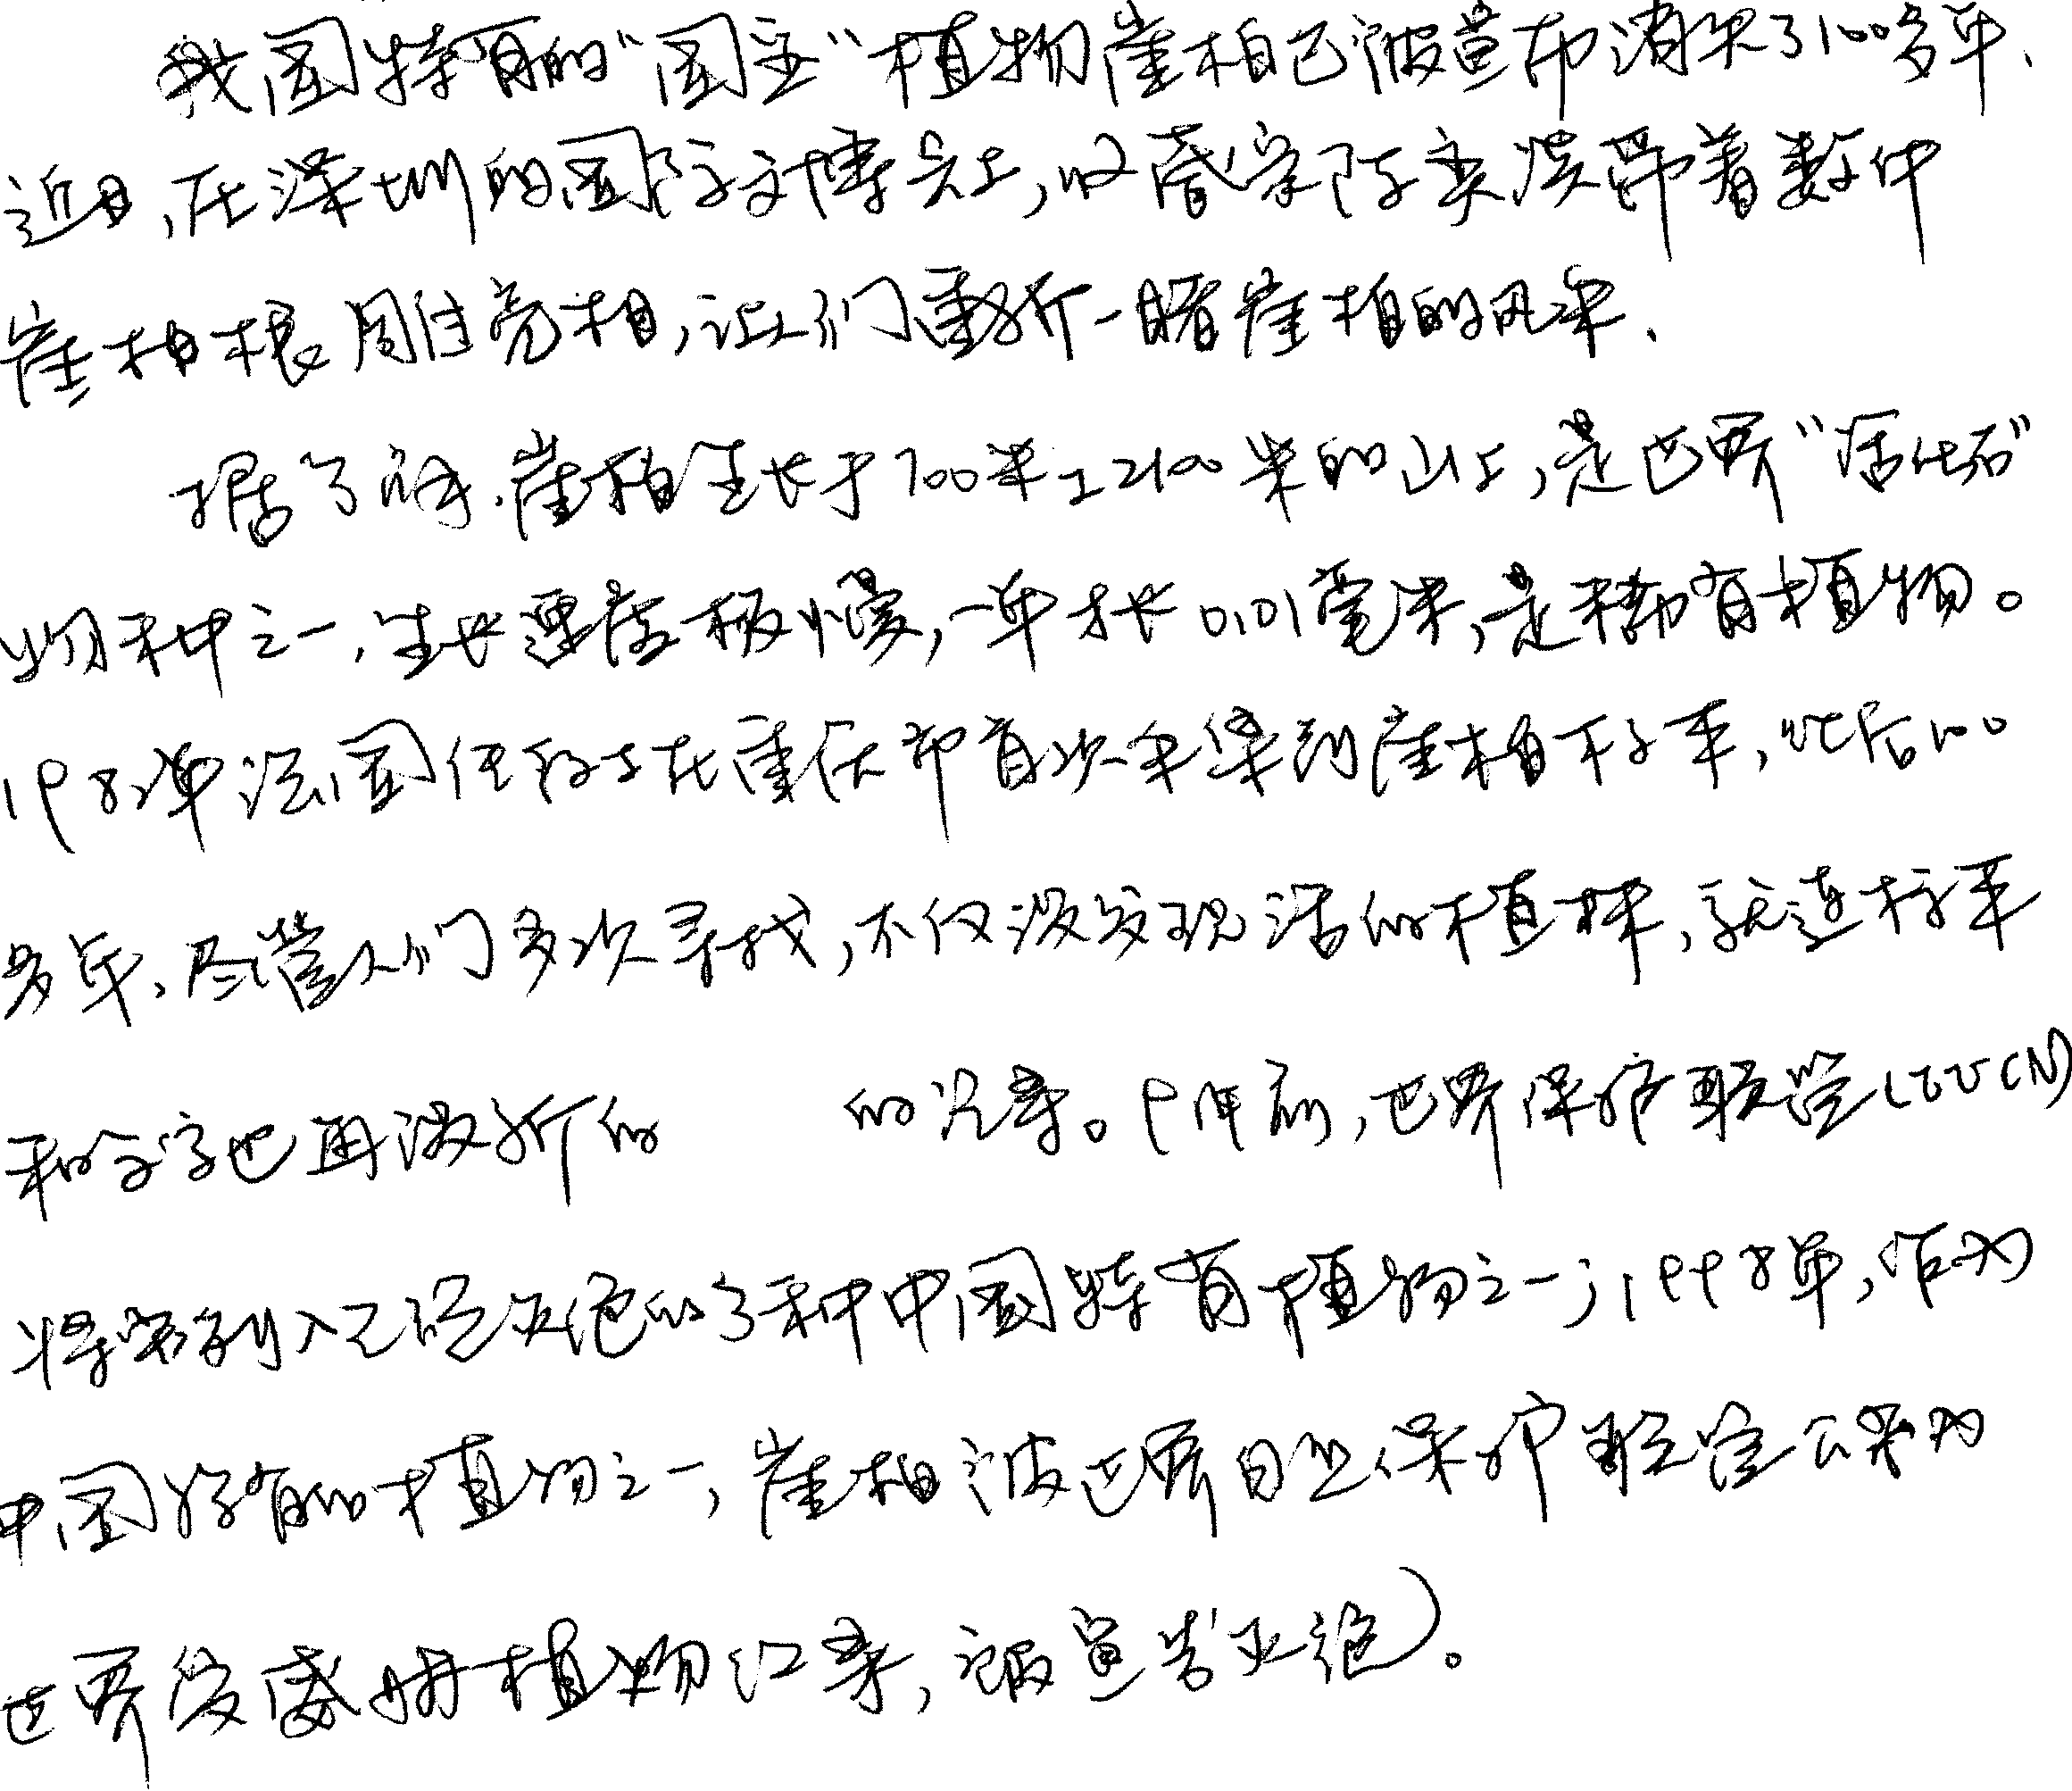 我国特有的“国宝”植物崖柏已被宣布消失了100多年、
近日,在深圳的国际文博会上,收藏家陈奕洪带着数件
崖柏根周佳亮相,让人们重新一睹崖柏的风采、
据了解,崖柏生长于700米至2100米的山上,是世界“活化石”
物种之一,生长速度极慢,一年才长0.01毫米,是稀有植物。
1982年法国传教士在重庆市首次采集到崖柏标本,此后100
多年,尽管人们多次寻找,不仅没发现活的植株,就连标本
和文字也再没新的 的记录。98年前,世界保护联盟(IUCN)
将崖柏列入已经灭绝的3种中国特有植物之一;1998年,作为
中国特有的植物之一,崖柏被世界自然保护联盟公布为
世界受威胁植物红录,被宣告灭绝)。